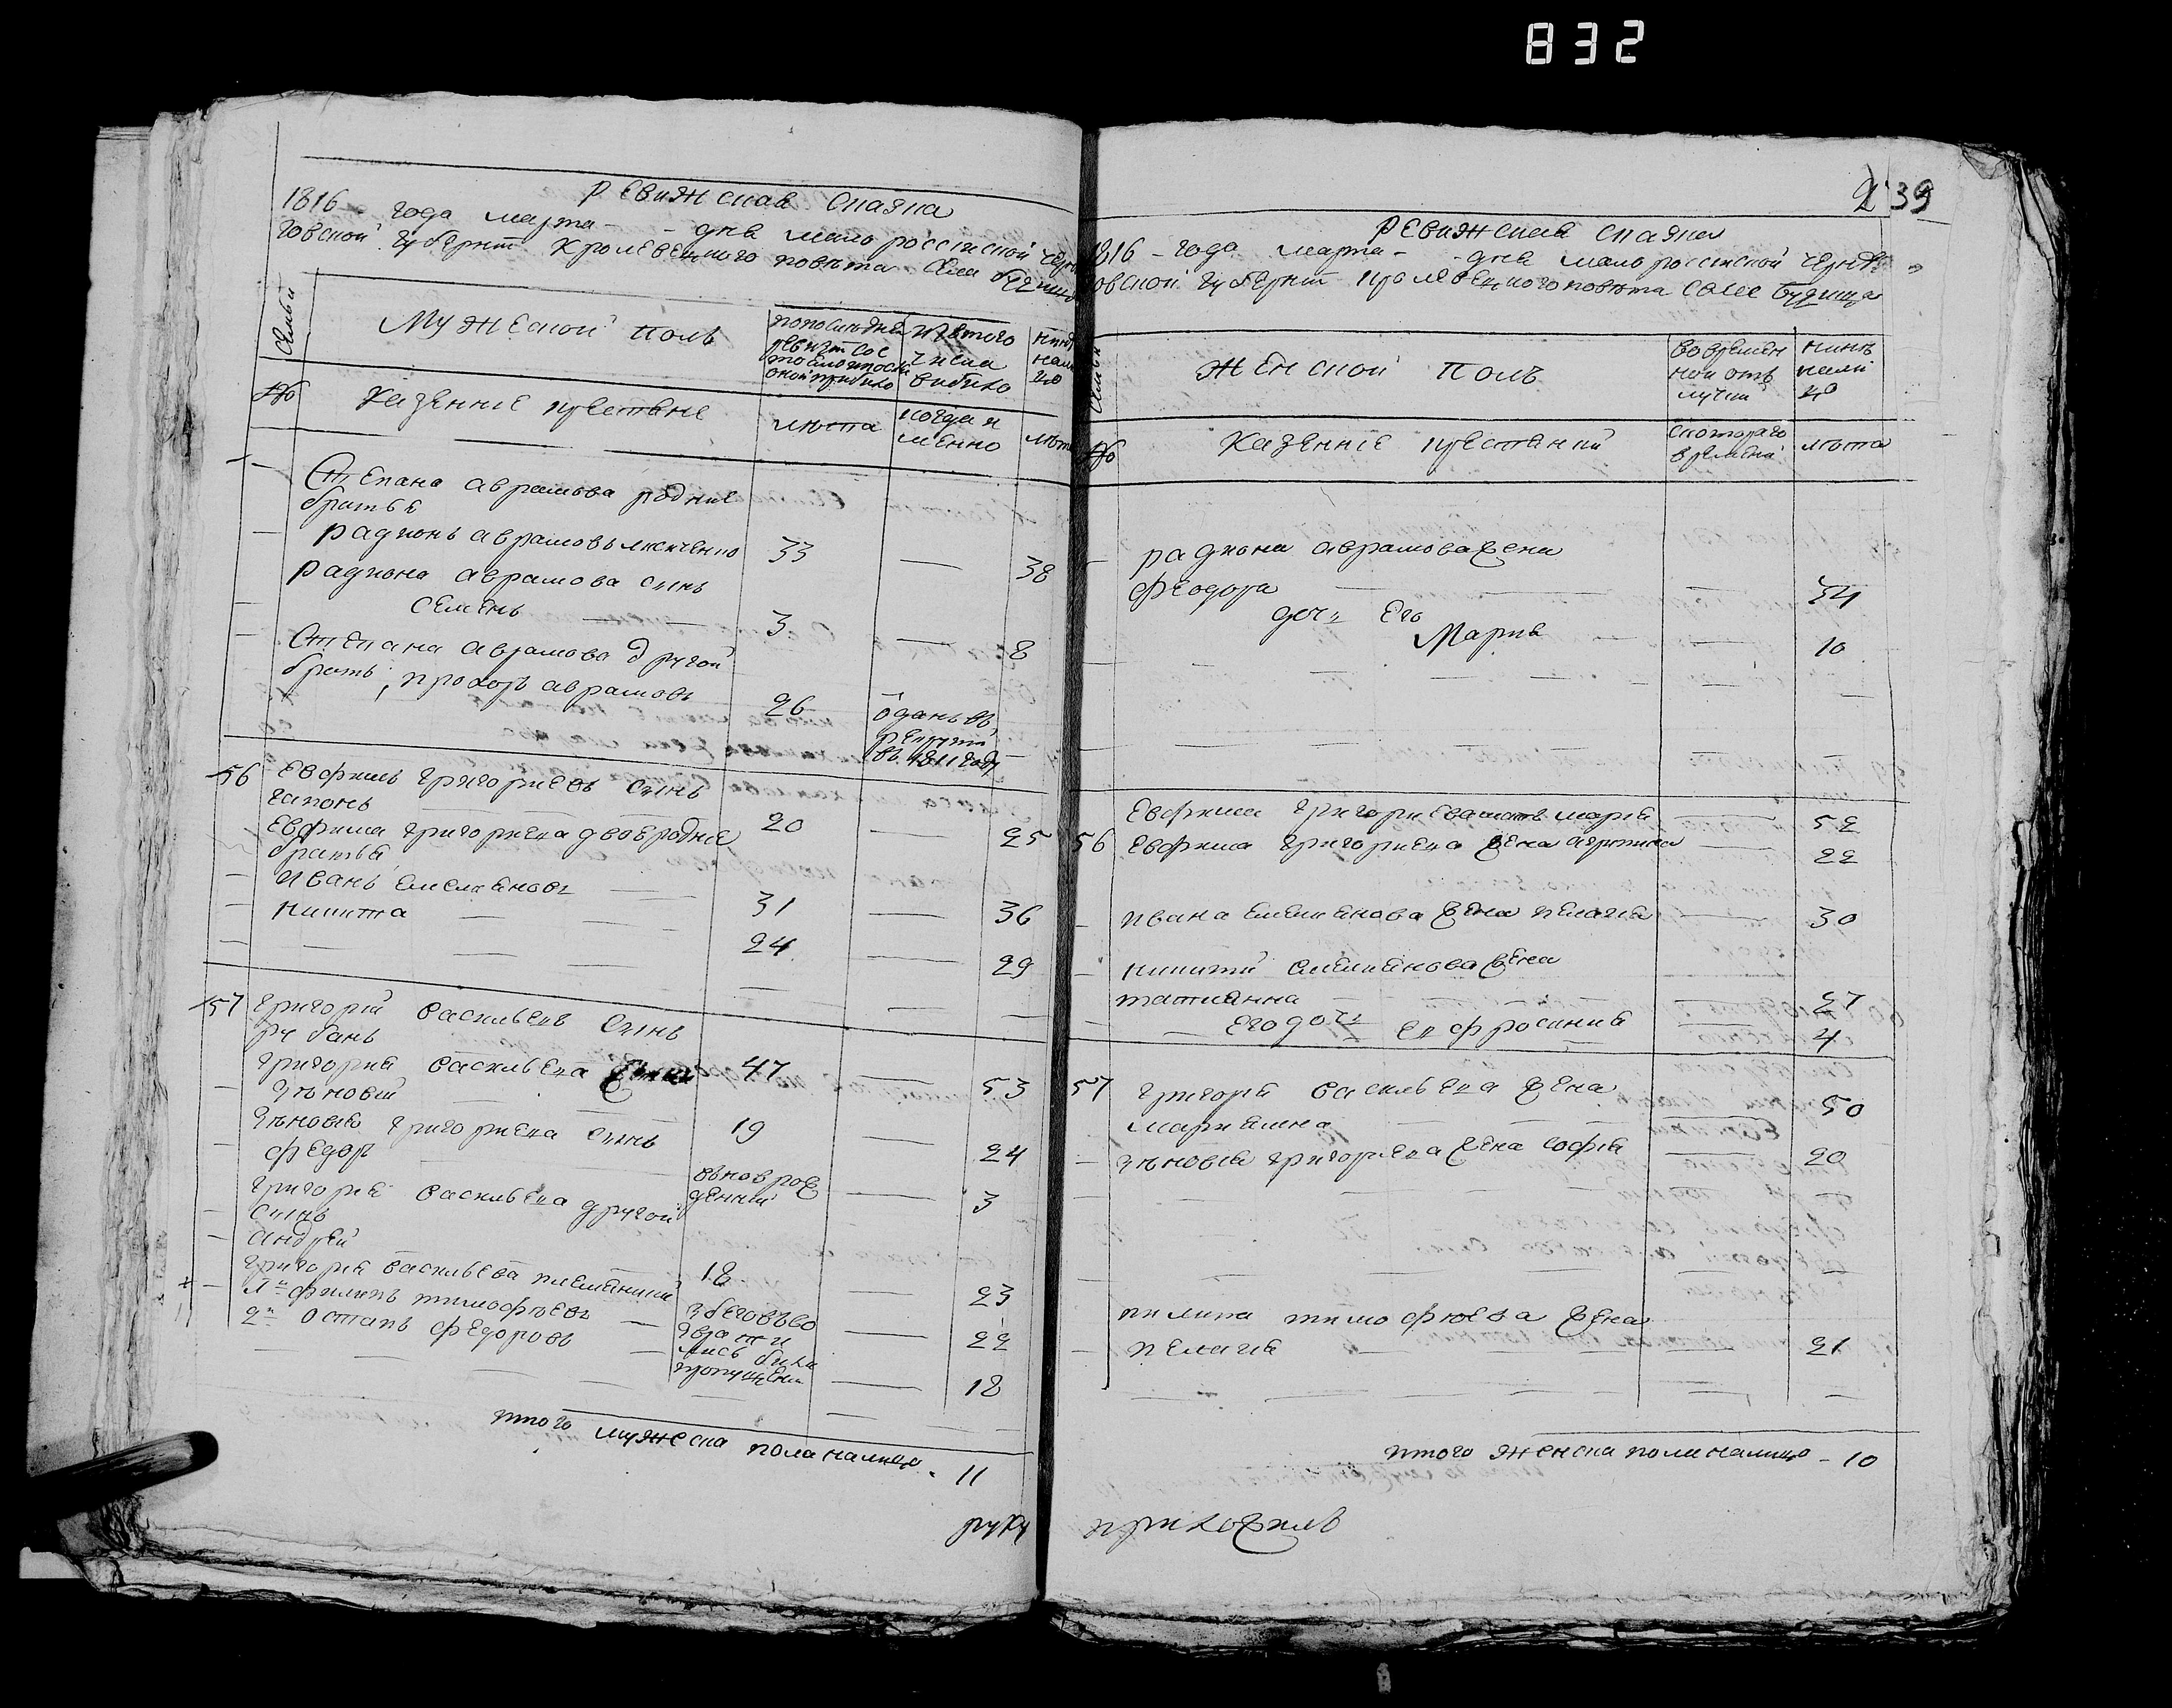 832
Ревижская сказка
1816 года марта - дня малороссиской черни
говской губернии Кролевецкого повета села Будищ
Семьи
Мужеской полъ
по последней
ревизии сос
тояло и после
оной прибило
из того
числа
вибило
ныне
нали
цо
№
Казенние крестяне
лета
когда и
менно
лета
Степана аврамова родние
братья
радионъ аврамовъ 33 — 38
радиона аврамова синъ
семенъ 3 — 8
Степана аврамова другой
братъ, прохоръ аврамовъ 26 отданъ въ
рекруты
въ 1811 году
56 Евфимъ григориевъ синъ
гапонъ 20 — 25
Евфима григориева двоеродние
братья
иванъ емеляновъ 31 — 36
никита 24 — 29
57 григорий васильевъ синъ
рубанъ 47 — 53
григория васильева
зеновий 19 — 24
зеновия григориева синъ
федоръ вновь рож
денний 3
григория васильева другой
синъ
андрей 18 — 23
григория васильева племянники
1й филипъ тимофеевъ 22
2й остапъ федоровъ 18
з беговъ во
зврати
лись били
пропущени
итого мужеска пола налицо - 11
руку
239
Ревижская сказка
1816 - года марта - дня малороссиской черни
говской губернии кролевецкого повета села Будищ
Семьи
Женской полъ
во времен
ной отъ
лучки
ныне
нали
цо
№
Казенние крестянки
с которого
времени
лета
радиона аврамова жена
феодора — 34
дочь Его
Мария — 10
Евфима григориева мать мария — 52
56 Евфима григориева жена агрипина — 22
ивана емелянова жена пелагия — 30
никити емелянова жена
татианна — 27
Его дочь Евфросиния — 4
57 григория васильева жена
мариамна 50
зеновия григориева жена софия — 20
пилипа тимофеева жена
пелагия — 21
итого женска пола налицо - 10
приложилъ